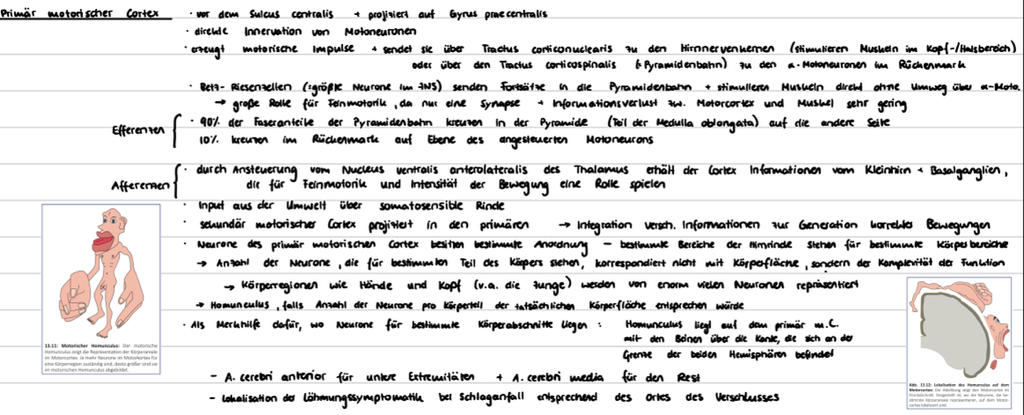 Primär motorischer Cortex
· vor dem Sulcus centralis + projiziert auf Gyrus praecentralis
· direkte Innervation von Motoneuronen
· erzeugt motorische Impulse + sendet sie über Tractus corticonuclearis zu den Hirnnervenkernen (stimulieren Muskeln im Kopf-/Halsbereich)
oder über den Tractus corticospinalis (Pyramidenbahn) zu den α-Motoneuronen im Rückenmark
· Betz-Riesenzellen (=größte Neurone im ZNS) senden Fortsätze in die Pyramidenbahn + stimulieren Muskeln direkt ohne Umweg über α-Moto.
→ große Rolle für Feinmotorik, da nur eine Synapse + Informationsverlust zw. Motorcortex und Muskel sehr gering
Efferenzen
· 90% der Faseranteile der Pyramidenbahn kreuzen in der Pyramide (Teil der Medulla oblongata) auf die andere Seite
10% kreuzen im Rückenmark auf Ebene des angesteuerten Motoneurons
Afferenzen
· durch Ansteuerung vom Nucleus ventralis anterolateralis des Thalamus erhält der Cortex Informationen vom Kleinhirn + Basalganglien,
die für Feinmotorik und Intensität der Bewegung eine Rolle spielen
· Input aus der Umwelt über somatosensible Rinde
· sekundär motorischer Cortex projiziert in den primären → Integration versch. Informationen zur Generation korrekter Bewegungen
· Neurone des primär motorischen Cortex besitzen bestimmte Anordnung – bestimmte Bereiche der Hirnrinde stehen für bestimmte Körperbereiche
→ Anzahl der Neurone, die für bestimmten Teil des Körpers stehen, korrespondiert nicht mit Körperfläche, sondern der Komplexität der Funktion
→ Körperregionen wie Hände und Kopf (v.a. die Zunge) werden von enorm vielen Neuronen repräsentiert
→ Homunculus, falls Anzahl der Neurone pro Körperteil der tatsächlichen Körperfläche entsprechen würde
· Als Merkhilfe dafür, wo Neurone für bestimmte Körperabschnitte liegen : Homunculus liegt auf dem primär m.C.
mit den Beinen über die Kante, die sich an der
Grenze der beiden Hemisphären befindet
- A. cerebri anterior für untere Extremitäten + A. cerebri media für den Rest
- Lokalisation der Lähmungssymptomatik bei Schlaganfall entsprechend des Ortes des Verschlusses
13.11: Motorischer Homunculus: Der motorische
Homunculus zeigt die Repräsentation der Körperareale
im Motorcortex. Je mehr Neurone im Motorkortex für
eine Körperregion zuständig sind, desto größer sind sie
im motorischen Homunculus abgebildet.
Abb. 13.12: Lokalisation des Homunculus auf dem
Motorcortex: Die Abbildung zeigt den Motorcortex im